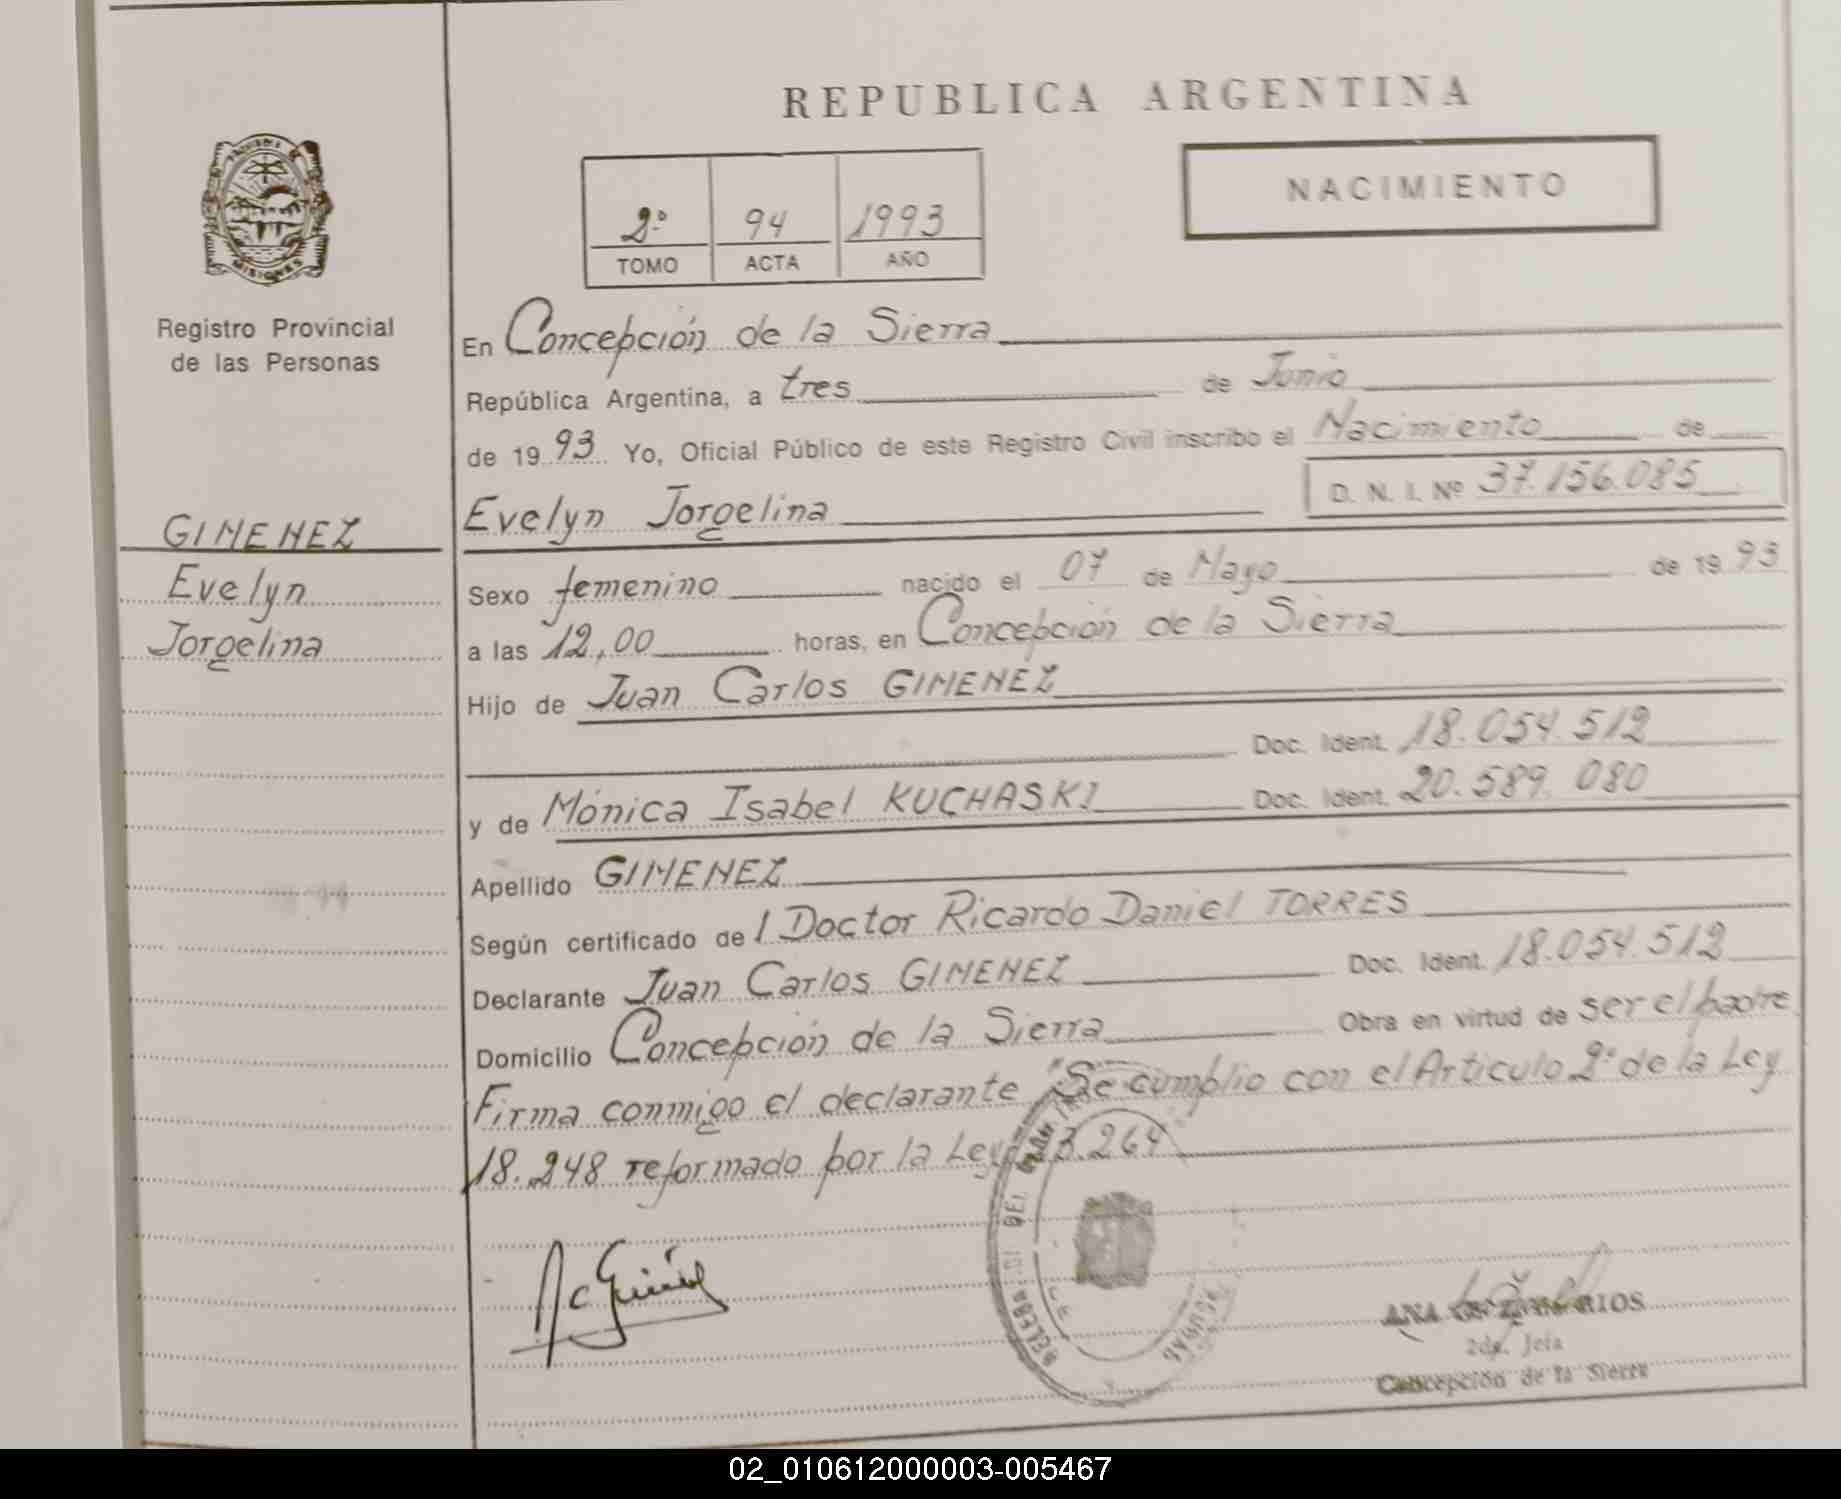 REPUBLICA ARGENTINA
NACIMIENTO
2º 94 1993
TOMO ACTA AÑO
MISIONES
Registro Provincial
de las Personas
GIMENEZ
Evelyn
Jorgelina
En Concepción de la Sierra
República Argentina, a tres de Junio
de 1993 Yo, Oficial Público de este Registro Civil inscribo el Nacimiento de
D. N. I. Nº 37.156.085
Evelyn Jorgelina
Sexo femenino nacido el 07 de Mayo de 1993
a las 12,00 horas, en Concepción de la Sierra
Hijo de Juan Carlos GIMENEZ
Doc. Ident. 18.054.512
y de Mónica Isabel KUCHASKI Doc. Ident. 20.589.080
Apellido GIMENEZ
Según certificado de l Doctor Ricardo Daniel TORRES
Declarante Juan Carlos GIMENEZ Doc. Ident. 18.054.512
Domicilio Concepción de la Sierra Obra en virtud de ser el padre
Firma conmigo el declarante "Se cumplio con el Articulo 2º de la Ley
18.248 reformado por la Ley 23.264
ANA RIOS
2da. Jefa
Concepción de la Sierra
02_010612000003-005467